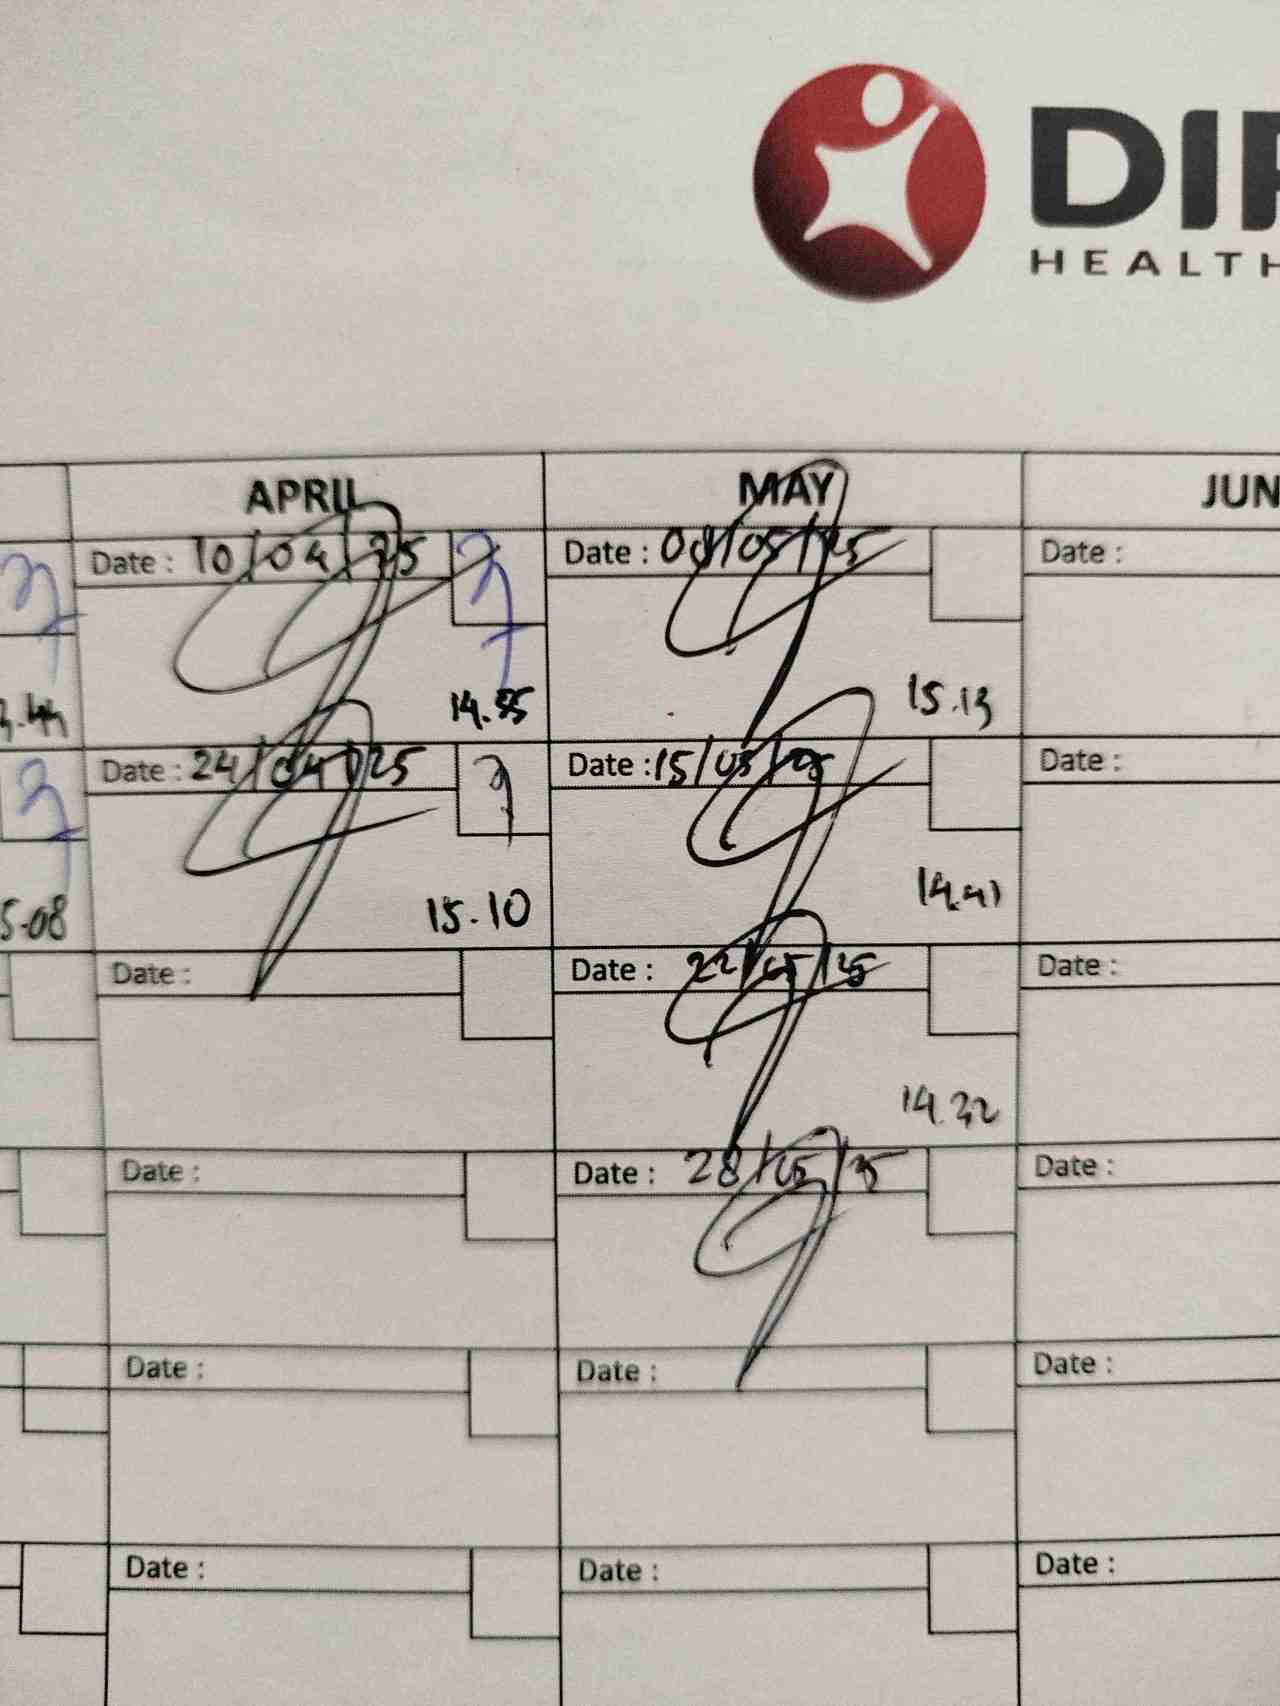 DI
HEALTH
APRIL MAY JUN
Date : 10/04/25 Date : 08/05/25 Date :
14.55 15.13
Date : 24/04/25 Date : 15/05/25 Date :
5.08 15.10 14.41
Date : Date : 22/05/25 Date :
14.32
Date : Date : 28/05/25 Date :
Date : Date : Date :
Date : Date : Date :